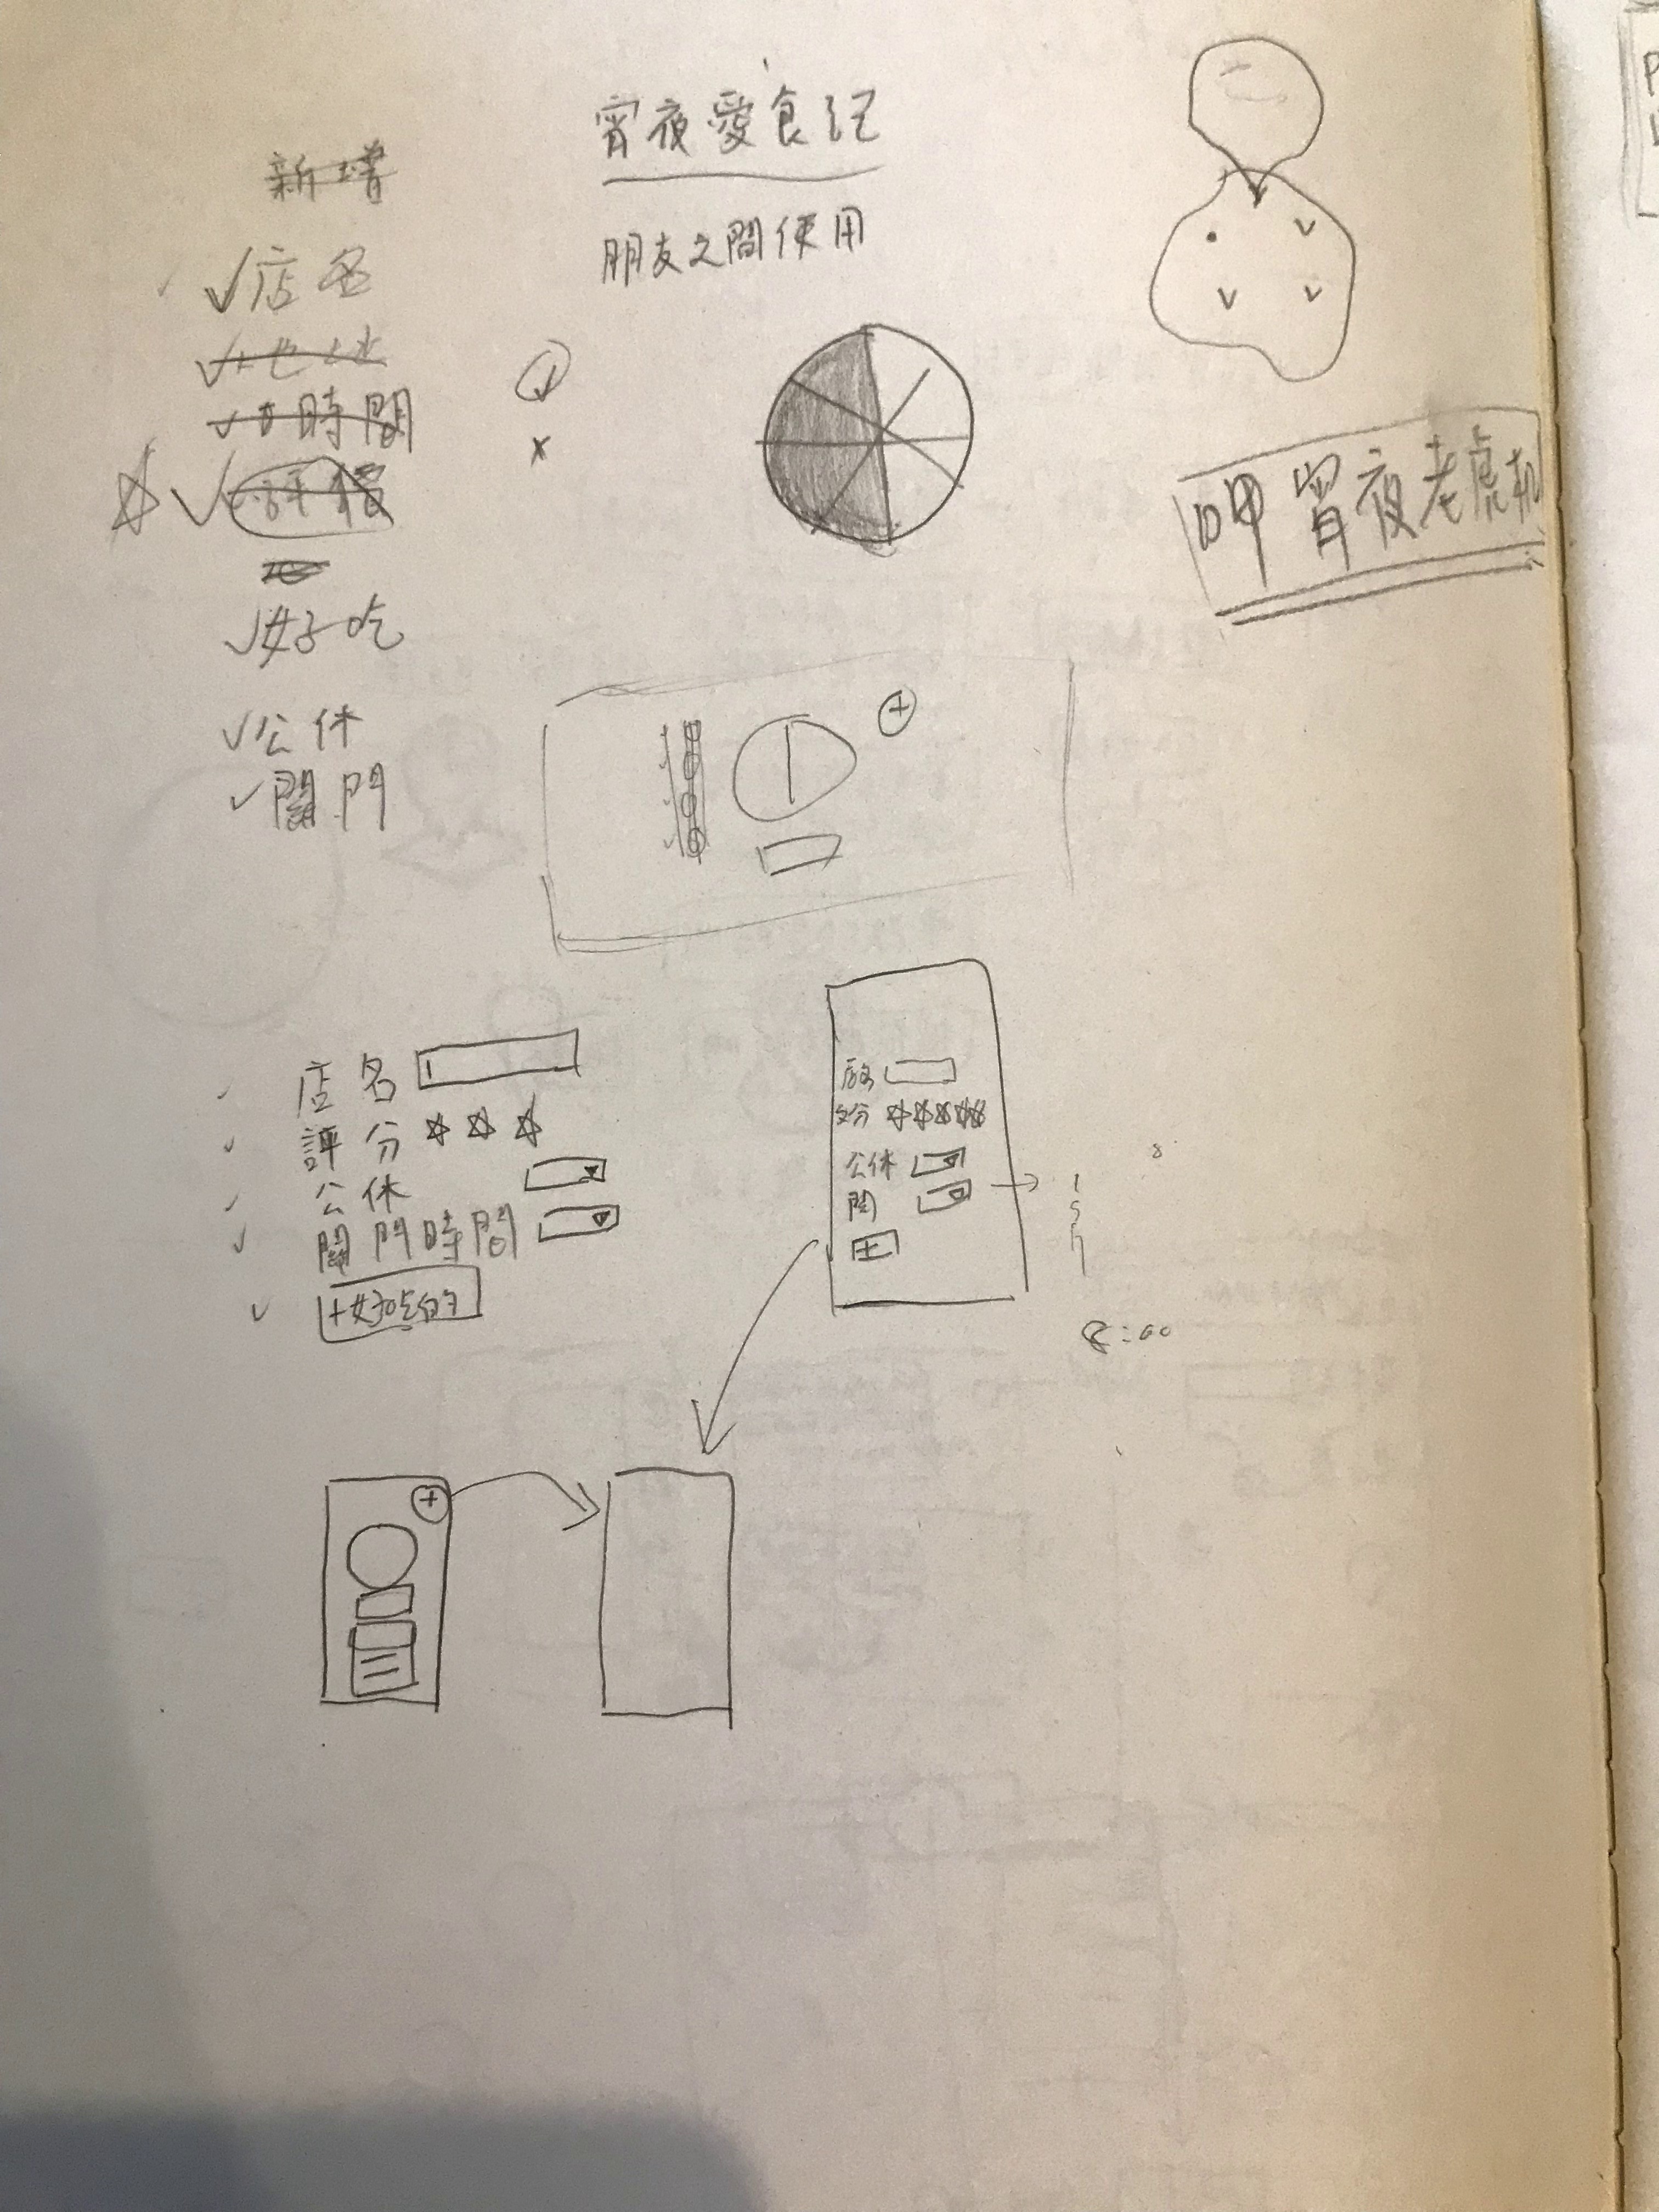 宵夜愛食記
朋友之間使用
新增
店名
時間
評價
好吃
公休
關門
呷宵夜老虎机
店名
評分
公休
關門時間
+好吃的
店名
評分
公休
關
+
8:00